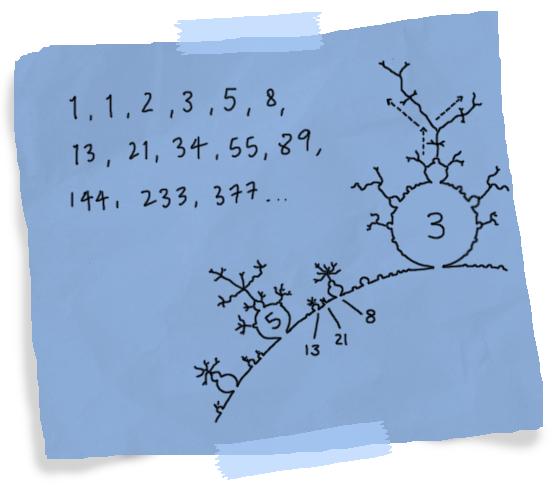 1, 1, 2, 3, 5, 8,
13, 21, 34, 55, 89,
144, 233, 377...
3
5
8
21
13